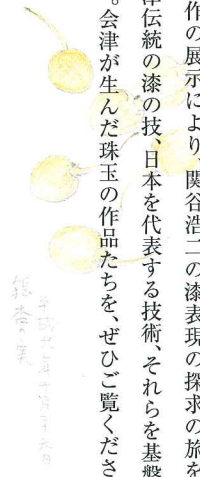 作の展示により、関谷浩二の漆表現の探求の旅を
津伝統の漆の技、日本を代表する技術、それらを基盤
。会津が生んだ珠玉の作品たちを、ぜひご覧くださ
銀杏の実